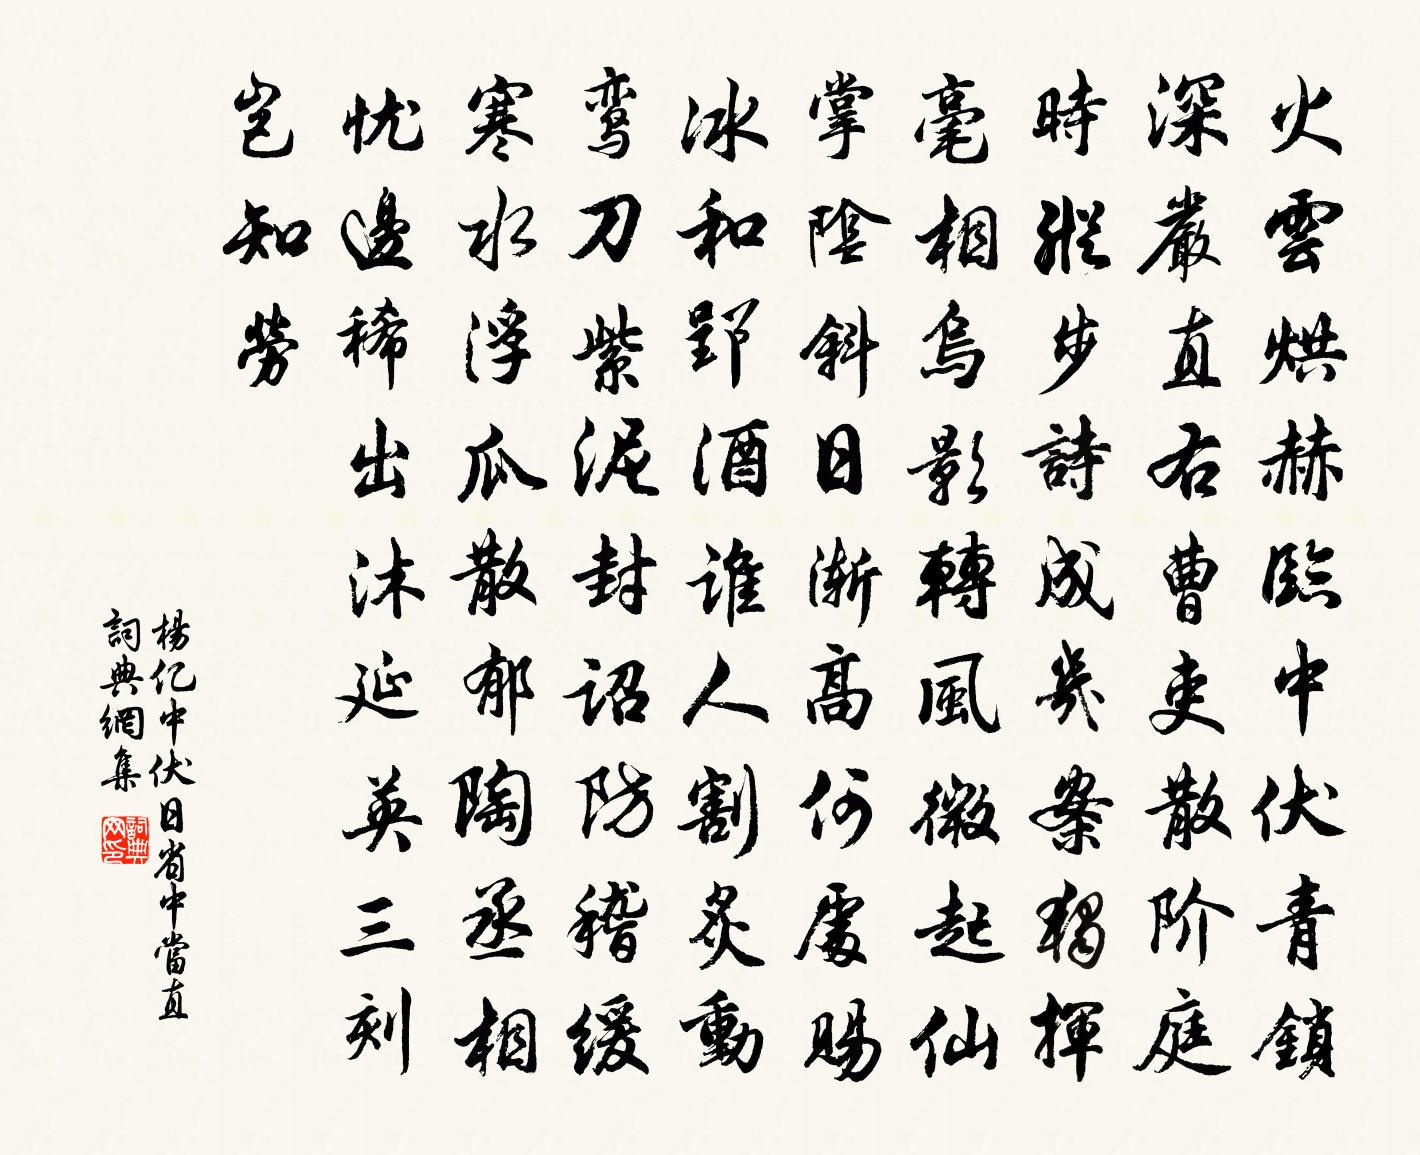 火雲烘赫臨中伏青鎖
深嚴直右曹吏散阶庭
時縱步詩成幾案獨揮
毫相烏影轉風微起仙
掌陰斜日漸高何處賜
冰和郢酒谁人割炙動
鸾刀紫泥封诏防稽缓
寒水浮瓜散郁陶丞相
忧邊稀出沐延英三刻
岂知勞
楊亿中伏日省中當直
詞典網集
詞典网印